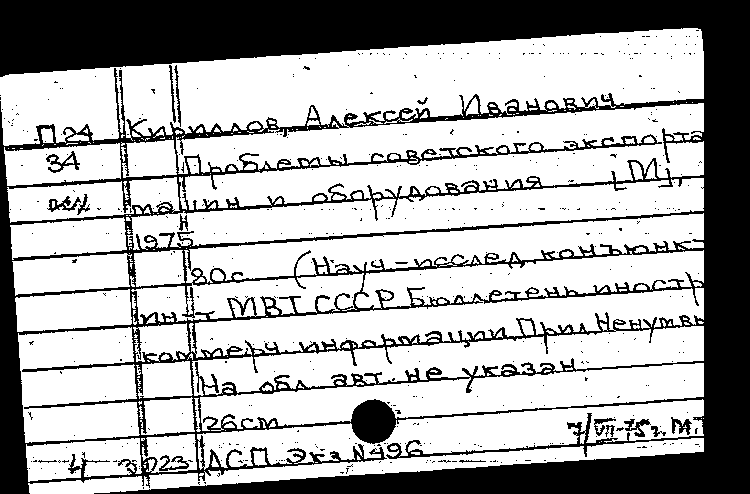 П24 Кириллов, Алексей Иванович.
34 Проблемы советского экспорта
машин и оборудования - [М],
1975
80с. (Науч.-исслед. конъюнк-
ин-т МВТ СССР Бюллетень иностр
коммерч. информации. Прил.
На обл. авт. не указан.
26см
7/VII-75г. М.Т
4 ДСП. Экз N496